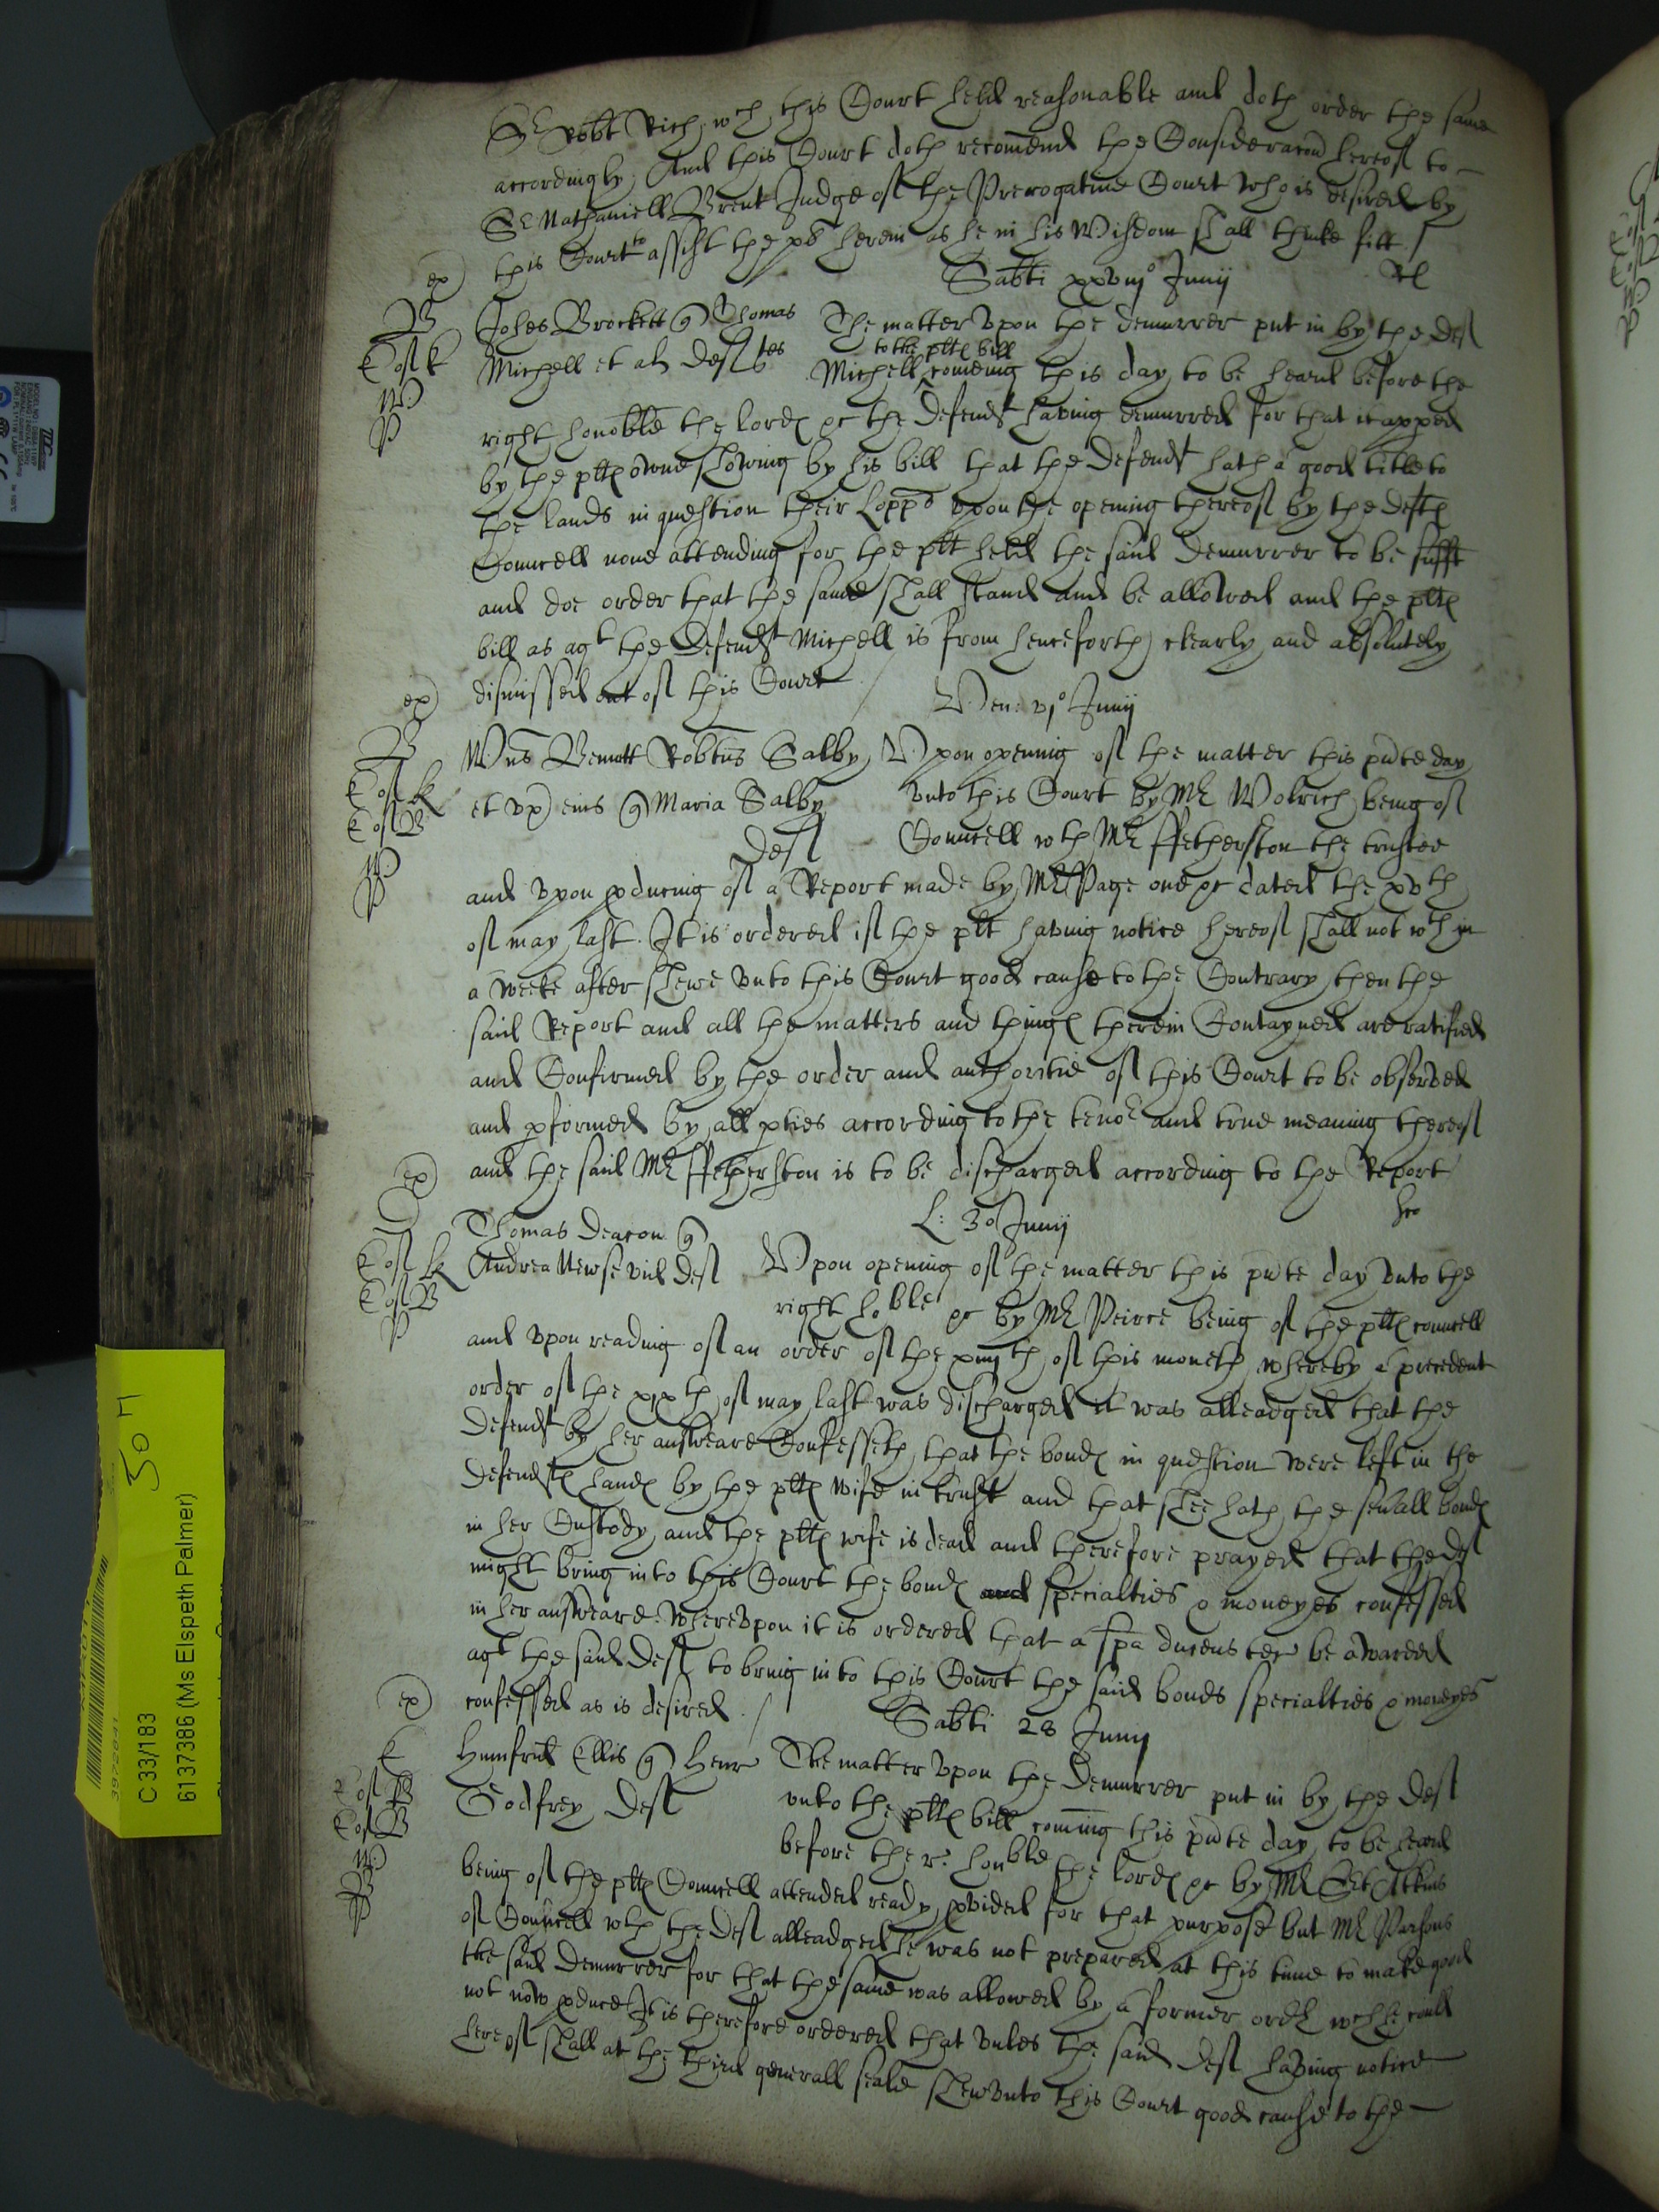 Sr Robt Rich, wch this Court held reasonable and doth order the same
accordingly And this Court doth recomend the Consideracon hereof to
Sr Nathaniell Brent Judge of the Prerogative Court who is desired by
this Court to assist the pte herein as he in his Wisdom shall thinke fitt /
ex
Sabti xxviijo Junij
Rl
B
Johes Brockett q Thomas
Michell et al Deftes
The matter vpon the demurrer put in by the Deft
to the plts bill
Michell comeing this day to be heard before the
right honoble the lords &c the Defendt having demurred for that it apped
by the plts owne showing by his bill that the Defendt hath a good title to
the lands in question their Lopps vpon the opening thereof by the Defts
Councell none attending for the plt held the said Demurrer to be sufft
and doe order that the same shall stand and be allowed and the plts
bill as agt the Defendt Michell is from henceforth clearly and absolutely
dismissed out of this Court /
ex
Ven: vjo Junij
B
Wms Bennett Robtus Salby
et vx eius q Maria Salby
Deft
Vpon opening of the matter this pnte day
vnto this Court by Mr Wolrich being of
Councell wth Mr ffetherston the trustee
and vpon pducing of a Report made by Mr Page one &c dated the xvth
of may last. It is ordered if the plt having notice hereof shall not wth in
a weeke after shewe vnto this Court good cause to the Contrary then the
said Report and all the matters and things therein Contayned are ratified
and Confirmed by the order and authoritie of this Court to be observed
and pformed by all pties according to the tenor and true meaning thereof
and the said Mr ffetherston is to be discharged according to the Report
ex
L: 30 Junij
Thomas Deacon q
Andrea Newse vid Deft
Vpon opening of the matter this pnte day vnto the
right hoble &c by Mr Peirce being of the plts councell
and vpon reading of an order of the xiijth of this moneth whereby a precedent
order of the xixth of may last was discharged it was alleadged that the
Defendt by her answeare Confesseth that the bonds in question were left in the
Defendts hands by the plts wife in trust and that shee hath the seuall bonds
in her Custody and the plts wife is dead and therefore prayed that the Deft
might bring into this Court the bonds and specialties & moneyes confessed
in her answeare. Wherevpon it is ordered that a spa ducens tec be awarded
agt the said Deft to bring in to this Court the said bonds specialties & moneyes
confessed as is desired. /
ex
Sabti 28 Junij
E
Humfrid Ellis q Henr
Godfrey Deft
The matter vpon the Demurrer put in by the Deft
vnto the plts bill coming this pnte day to be heard
before the r. honble the lords &c by Mr Sergt Atkins
being of the plts Councell attended ready pvided for that purpose but Mr Parsons
of Councell wth the Deft alleadged he was not prepared at this time to make good
the said Demurrer for that the same was allowed by a former order wch he could
not now pduce It is therefore ordered that vnles the said Deft having notice
hereof shall at the third generall seale shew vnto this Court good cause to the
C 33/183
6137386 (Ms Elspeth Palmer)